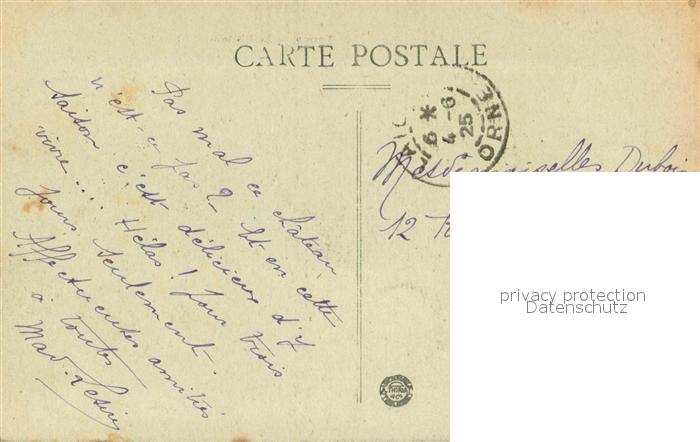 CARTE POSTALE
Pas mal ce château
n'est-ce pas ? Et en cette
saison c'est délicieux d'y
vivre... Hélas ! pour trois
jours seulement.
Affectueuses amitiés
à toutes
Mad.
*
6
4-6
25
ORNE
Mesdemoiselles Dubois
12
privacy protection
Datenschutz